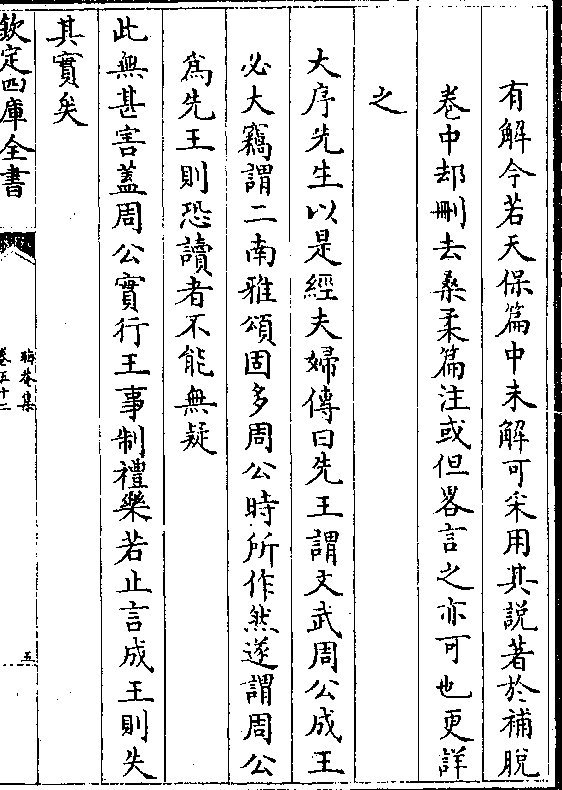 有解今若天保篇中未解可采用其説著於補脫
卷中却刪去桑柔篇注或但畧言之亦可也更詳
之
大序先生以是經夫婦傳曰先王謂文武周公成王
必大竊謂二南雅頌固多周公時所作然遂謂周公
爲先王則恐讀者不能無疑
此無甚害蓋周公實行王事制禮樂若止言成王則失
其實矣
欽定四庫全書
晦菴集
卷五十二
五